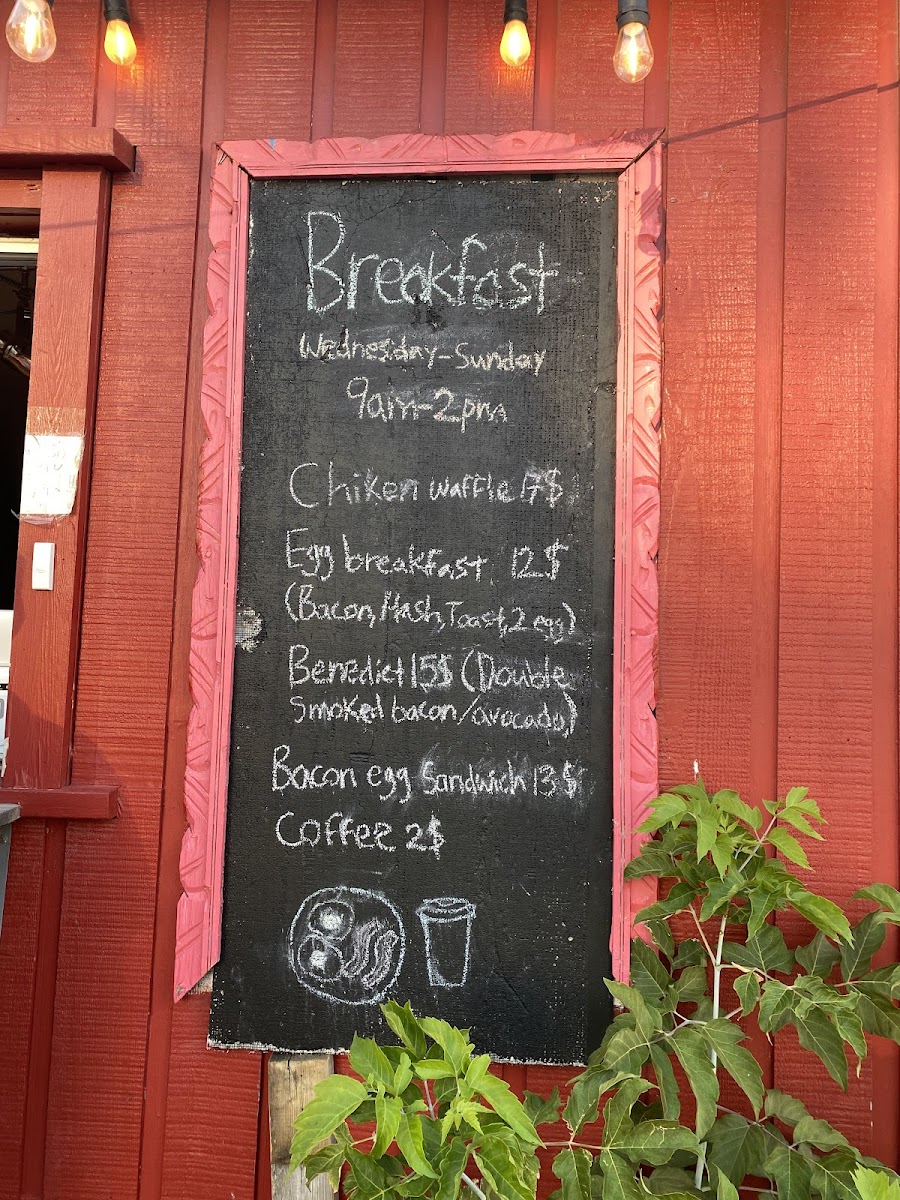 Breakfast
Wednesday-Sunday
9am-2pm
Chiken waffle 17$
Egg breakfast 12$
(Bacon, Hash, Toast, 2 egg)
Benedict 15$ (Double
Smoked bacon/avocado)
Bacon egg Sandwich 13$
Coffee 2$